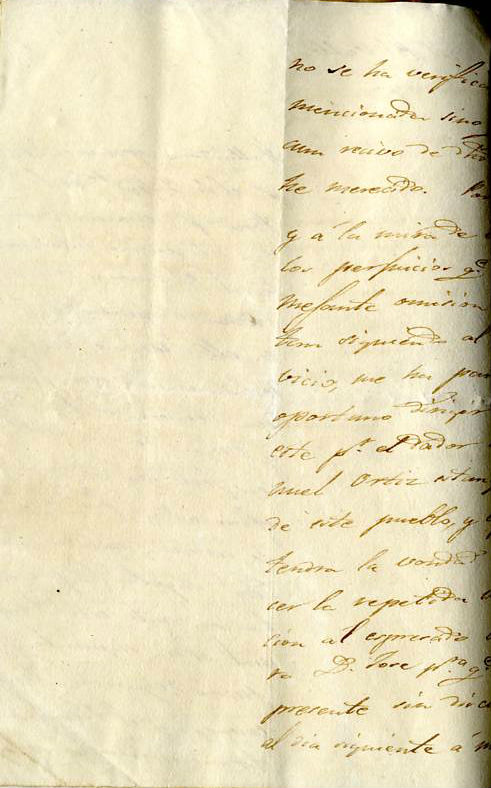 no se ha verifica
mencionada sino
aun recivo de dho
he merecido. Por
y á la mira de
los perjuicios q.e
mejante omision
tem siguiendo al
vicio, me ha par
oportuno dirigir
este p.r el dador
nuel Ortiz
de este pueblo, y
tendra la vondad
cer la repetida
cion al espresado
ra D. Jose p.a q.e
presente sin
al dia siguiente á